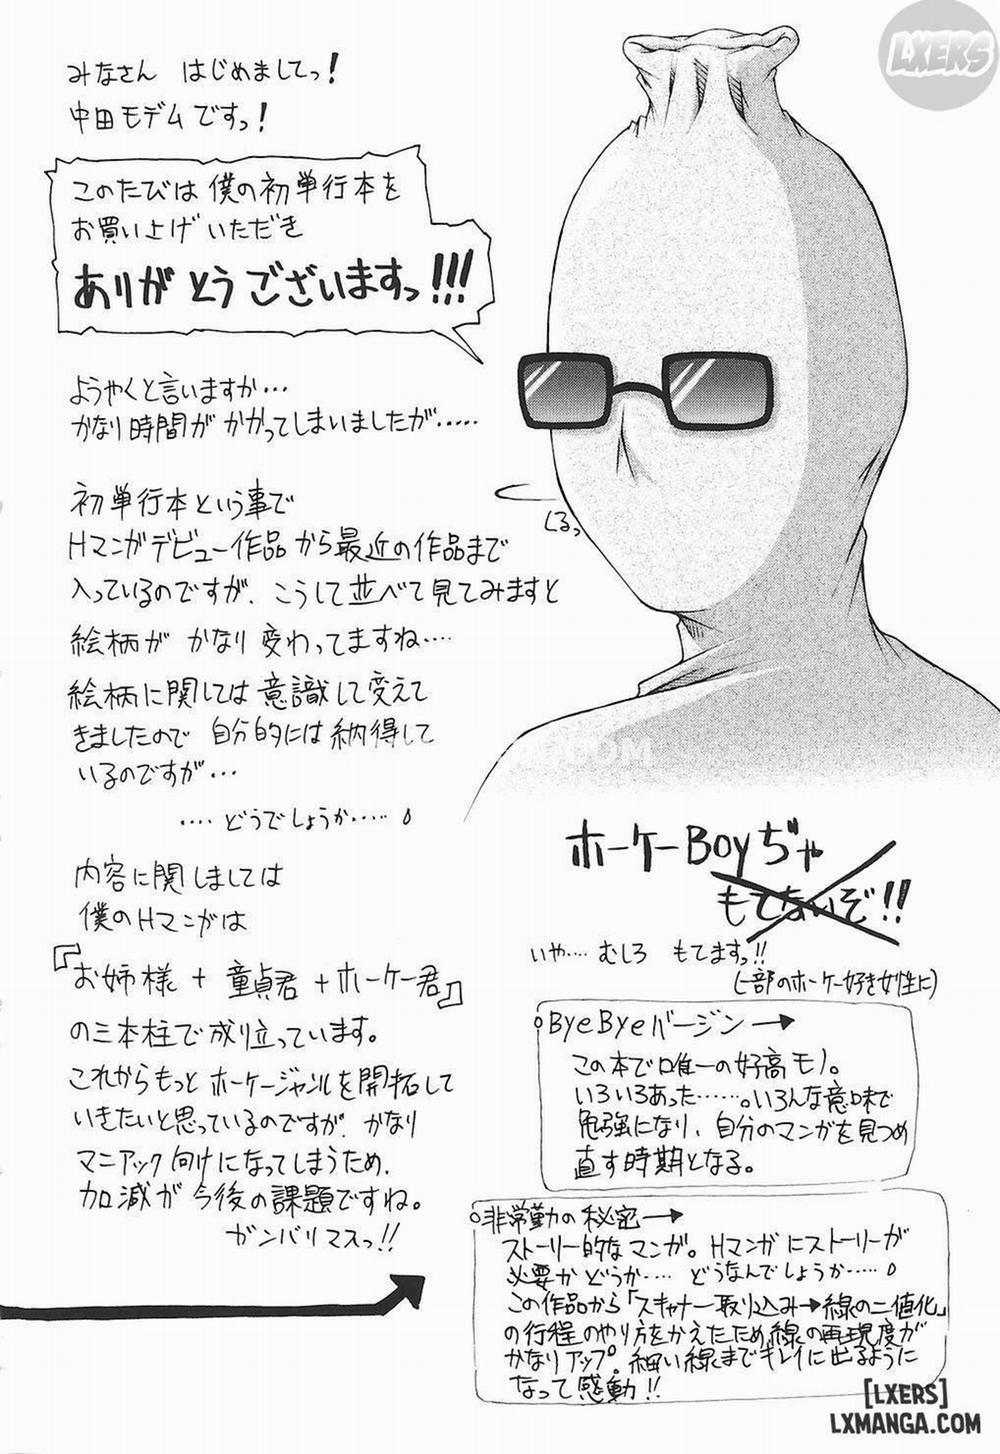 みなさん はじめましてっ!
中田モデムですっ!
このたびは 僕の初単行本を
お買い上げ いただき
ありがとうございますっ!!!
ようやくと言いますか…
かなり時間が かかってしまいましたが……
初単行本という事で
Hマンガデビュー作品から最近の作品まで
入っているのですが、こうして並べて見てみますと
絵柄が かなり 変わってますね……
絵柄に関しては意識して変えて
きましたので 自分的には納得して
いるのですが…
‥‥どうでしょうか……
内容に関しましては
僕のHマンガは
『お姉様+童貞君+ホーケー君』
の三本柱で成り立っています。
これからもっと ホーケージャンルを開拓して
いきたいと思っているのですが、かなり
マニアック向けになってしまうため、
加減が今後の課題ですね。
ガンバリマスっ!!
くるっ
ホーケーBoyぢゃ
もてないぞ!!
いや‥‥むしろ もてますっ!!
(一部のホーケー好き女性に)
ByeByeバージン→
この本で唯一の女子高モノ。
いろいろあった……。いろんな意味で
勉強になり、自分のマンガを見つめ
直す時期となる。
非常勤の秘密→
ストーリー的なマンガ。Hマンガにストーリーが
必要かどうか‥‥ どうなんでしょうか……
この作品から「スキャナー取り込み→線の二値化」
の行程のやり方をかえたため、線の再現度が
かなりアップ。細い線までキレイに出るように
なって感動!!
LXERS
[LXERS]
LXMANGA.COM